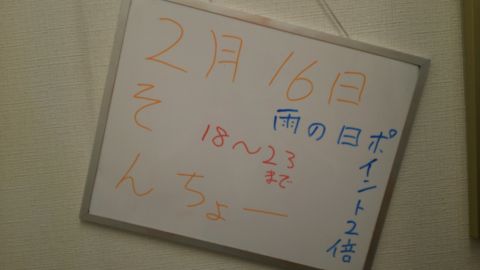 2月16日
そんちょー
18～23
まで
雨の日ポイント2倍